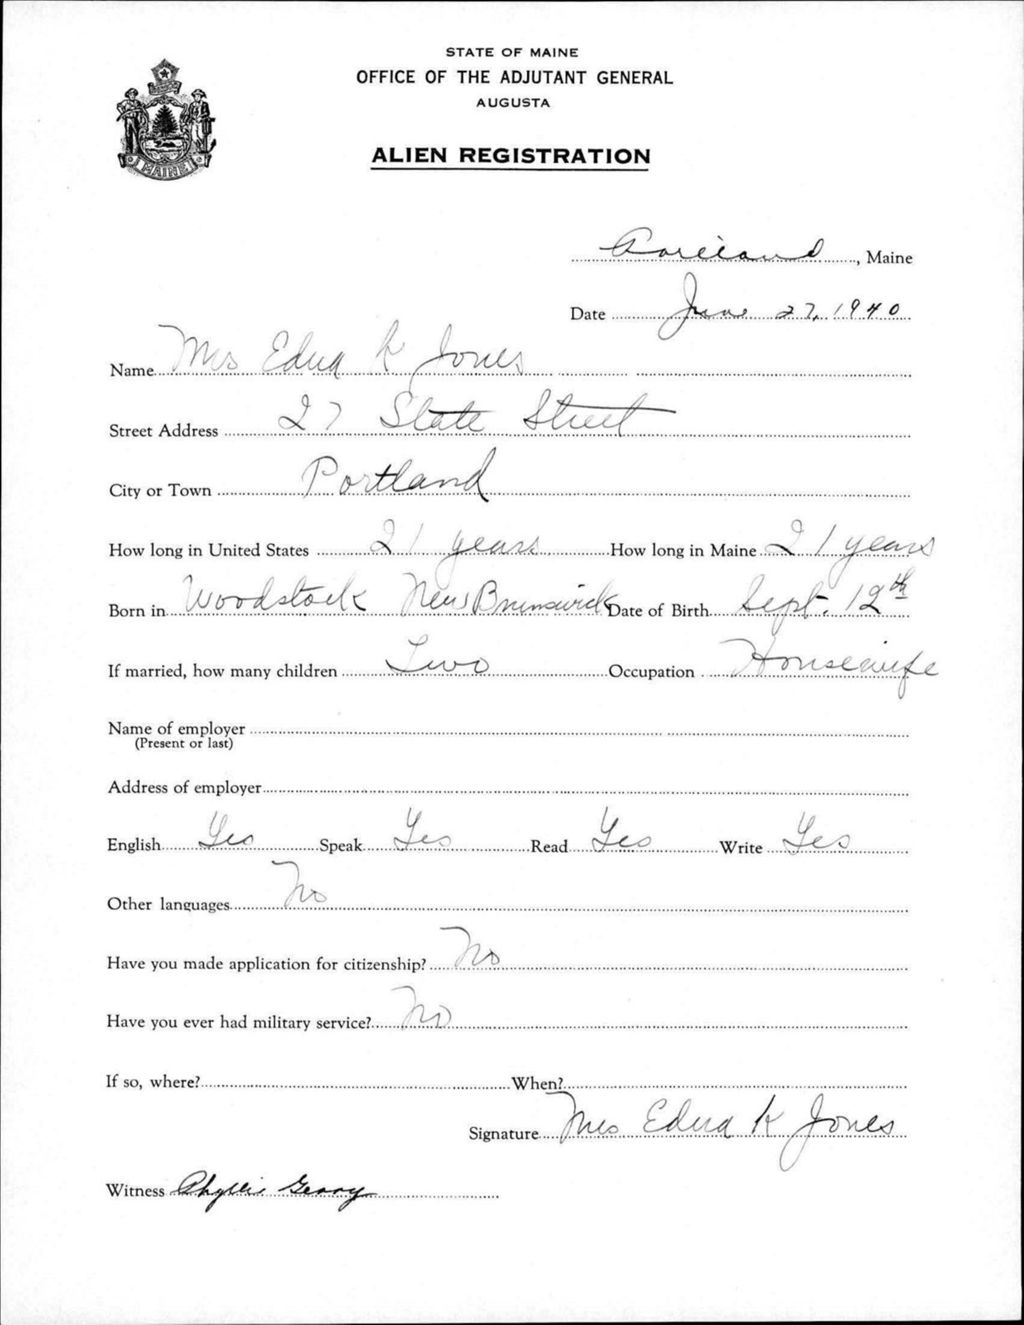 STATE OF MAINE
OFFICE OF THE ADJUTANT GENERAL
AUGUSTA
ALIEN REGISTRATION
MAINE
Portland, Maine
Date June 27, 1940
Name Mrs Edna K Jones
Street Address 27 State Street
City or Town Portland
How long in United States 21 years How long in Maine 21 years
Born in Woodstock New Brunswick Date of Birth Sept. 12th
If married, how many children Two Occupation Housewife
Name of employer
(Present or last)
Address of employer
English Yes Speak Yes Read Yes Write Yes
Other languages No
Have you made application for citizenship? No
Have you ever had military service? No
If so, where? When?
Signature Mrs Edna K Jones
Witness Phyllis Geary